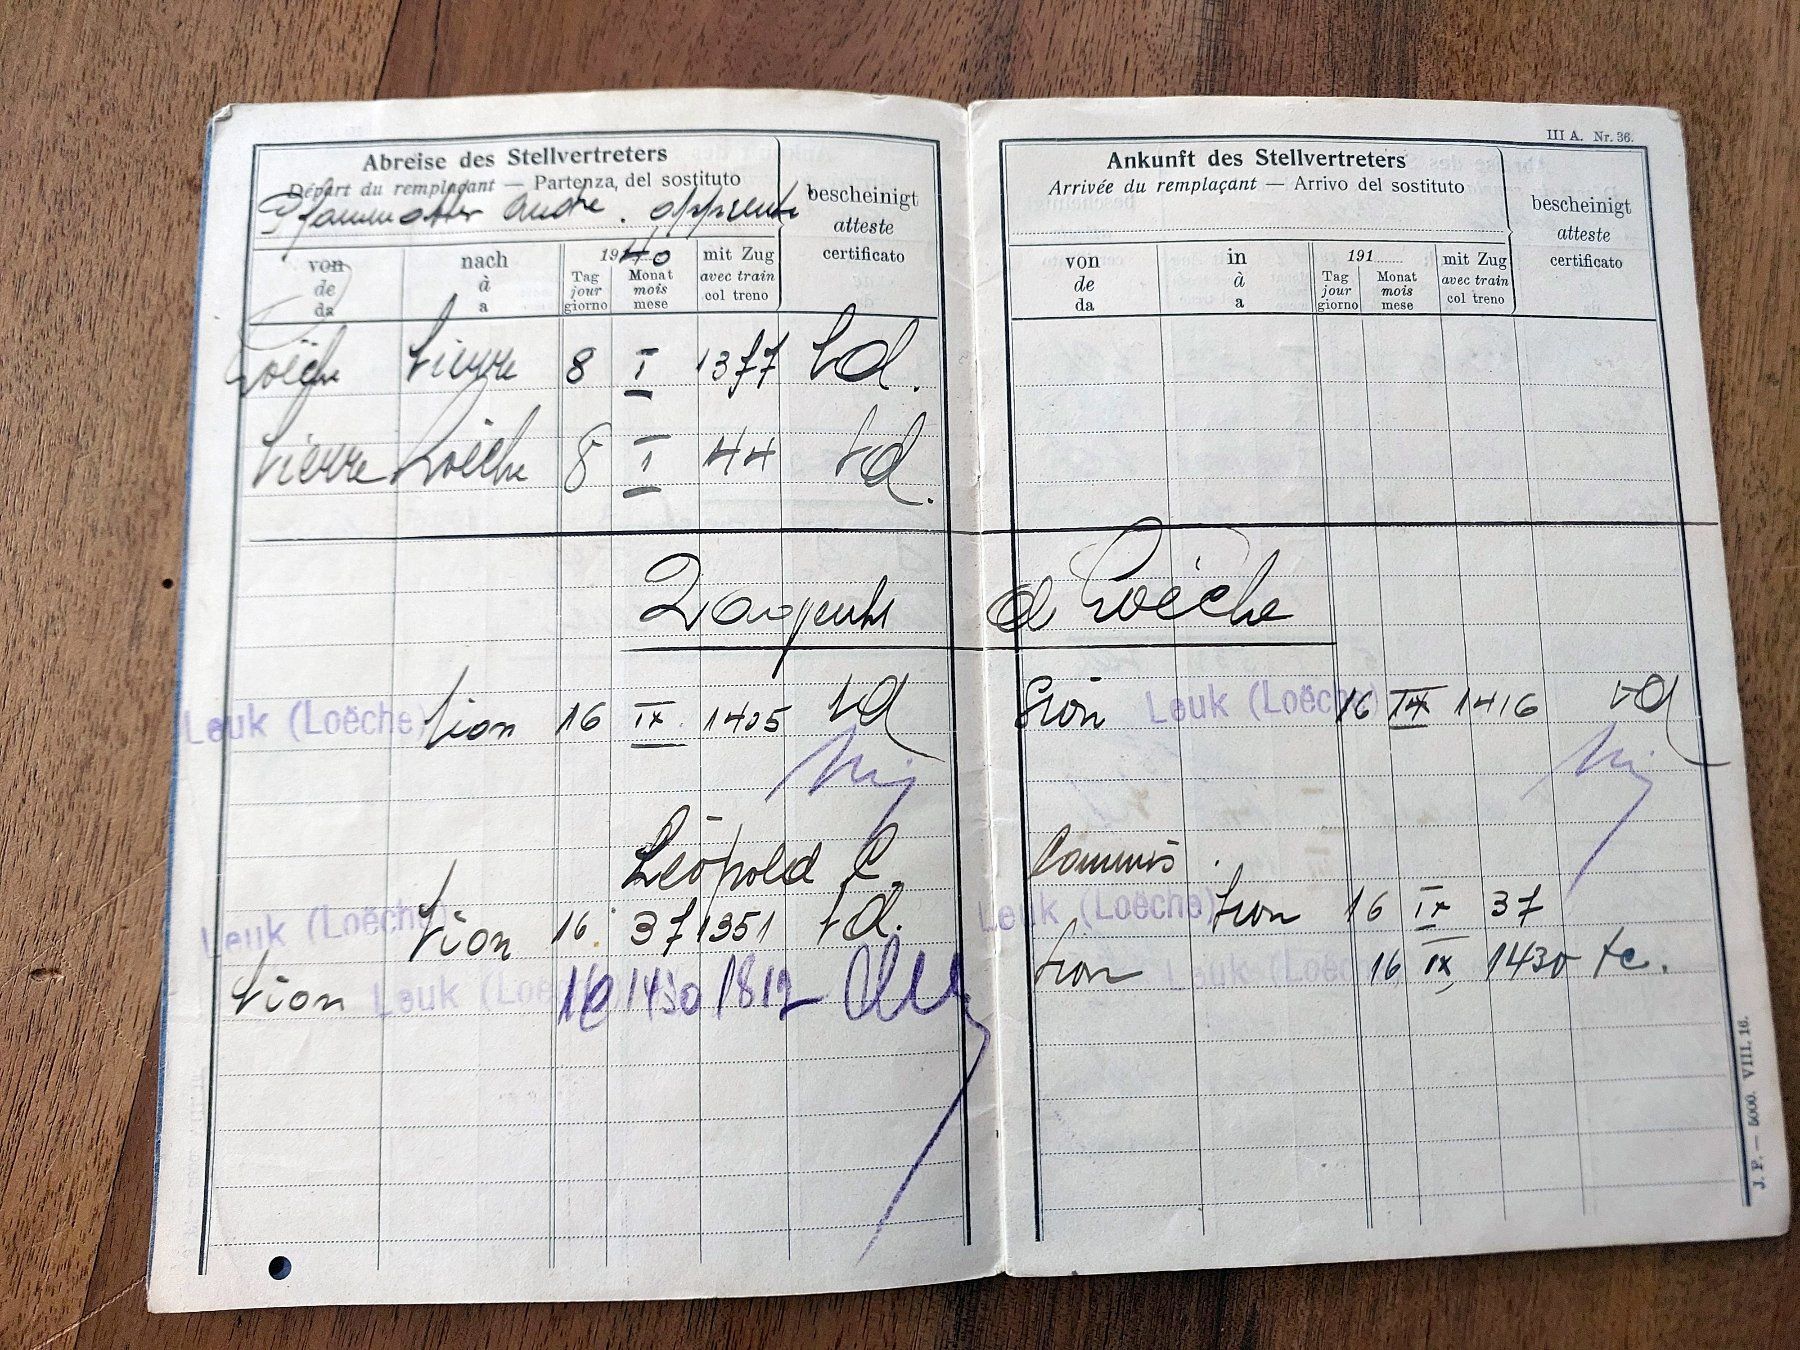 Abreise des Stellvertreters
Départ du remplaçant — Partenza del sostituto
Pfammatter André. apprenti
bescheinigt
atteste
certificato
von nach 1940 mit Zug
de à Tag Monat avec train
da a jour mois col treno
giorno mese
Loèche Sierre 8 I 1377 td.
Sierre Loèche 8 I 44 td.
2 agents
Leuk (Loèche) Sion 16 IX 1405 td
Léopold C.
Leuk (Loèche) Sion 16 37 1351 td.
Sion Leuk (Loèche) 16 1430 1812
III A. Nr. 36.
Ankunft des Stellvertreters
Arrivée du remplaçant — Arrivo del sostituto
bescheinigt
atteste
certificato
von in 191...... mit Zug
de à Tag Monat avec train
da a jour mois col treno
giorno mese
à Loèche
Sion Leuk (Loèche) 16 IX 1416 td
Commis.
Leuk (Loèche) Sion 16 IX 37
Sion Leuk (Loèche) 16 IX 1430 tc.
J. P. — 5000. VIII. 16.